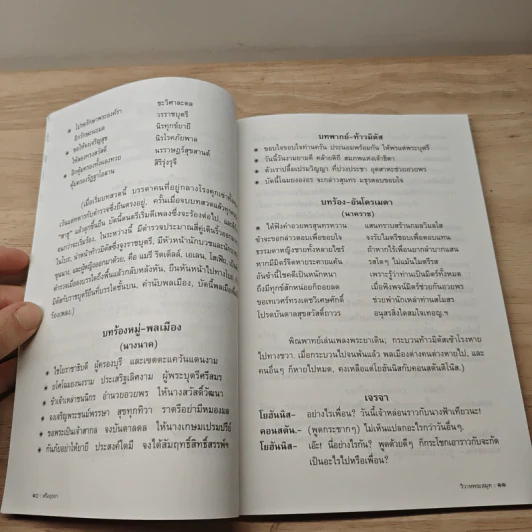 ไปรดรักษาพระองค์รา ชะวิศาละดล
อีกรักษนฤมล วรราชบุตรี
ขอให้จงเจริญสุข นิรทุกข์ยายี
ให้สองทางสวัสดิ์ นิรโรคภัยพาล
อีกคุ้มครองทั้งผองพวย นรราษฎร์สุขสานต์
คุ้มครองรัฐฐาสถาน สิริรุ่งรุจี
(เมื่อเริ่มบทสวดนี้ บรรดาคนที่อยู่กลางโรงคุกเข่าทั้งหมด
เว้นแต่ทหารกับตำรวจซึ่งยืนตรงอยู่. ครั้นเมื่อจบบทสวดแล้วทุกคนร้อง
"สาธุ" แล้วลุกขึ้นยืน
บทร้องหมู่-พลเมือง
(นางนาค)
ไชโยราชาธิบดี ผู้ครองบุรี และเขตตะแควันแดนงาม
ยศโฉมยงนงราม ประเสริฐเลิศงาม ผู้พระบุตรีศรีสมร
ข้าเจ้าเหล่าชนนิกร อำนวยอวยพร ให้นางสวัสดิ์วัฒนา
จงเจริญพระชนม์พรรษา สุขุทุกทิวา ราตรีอย่ามีหมองมล
ขอพระเป็นเจ้าสากล จงบันดาลดล ให้นางเกษมเปรมปรีดิ์
กันภัยอย่าให้ยายี ประสงค์ใดมี จงได้สัมฤทธิ์สิทธิ์สรรพ์ฯ
๑๐ : ศรีอยุธยา
บทพากย์-ท้าวมิดัส
ขอบใจขอบใจท่านครับ ประนอมพร้อมกัน ให้พรแด่พระบุตรี
วันนี้วันงามยามดี คล้ายพิธี สมภพแห่งเจ้าธิดา
ตัวเราเปลื้องเปรมวิญญา ที่ปวงประชา อุตสาหะช่วยอวยพร
บัดนี้โฉมยงองอร จะกล่าวสุนทร มธุรตอบขอบใจ
บทร้อง-อันโดรเมดา
(นาคราช)
ได้ฟังคำอวยพรสุนทรหวาน แสนทราบสร้านกมลวิมลใส
ข้าจะขอกล่าวตอบเพื่อขอบใจ จงรับไมตรีขอบเพื่อตอบแทน
ธรรมดาหญิงชายทั้งหลายไซร้ ถ้าหากไร้เพื่อนยากลำบากแสน
หากมีมิตรจิตหายกระะคายแค้น รสใดๆ ไม่แม้นไมตรีรส
อันข้านี้โชคดีเป็นหนักหนา เพราะรู้ว่าท่านเป็นมิตรทั้งหมด
ถึงมีทุกข์สักหน่อยก็ถอยลด เมื่อพึงพจน์มิตรช่วยกันอวยพร
ขอเทเวศร์ทรงเดชวิเศษศักดิ์ ช่วยพำนักเหล่าท่านสโมสร
โปรดบันดาลสุขสวัสดิ์ถาวร อนุสรสิ่งใดสมใจเทอญฯ
พิณพาทย์เล่นเพลงพระยาเดิน; กระบวนท้าวมิดัสเข้าโรงหาย
ไปทางขวา. เมื่อกระบวนไปจนพ้นแล้ว พลเมืองต่างคนต่างหายไป, และ
คนอื่นๆ ก็หายไปหมด, คงเหลือแต่โยฮันนิสกับคอนสตันตีโนส.)
เจรจา
โยฮันนิส- อย่างไรเพื่อน? วันนี้เจ้าหล่อนราวกับนางฟ้าเทียวนะ!
คอนสตัน.- (พูดกระชากๆ) ไม่เห็นแปลกอะไรกว่าวันอื่นๆ.
โยฮันนิส- เอ๊ะ! นี่อย่างไรกัน? พูดด้วยดีๆ ก็กระโชกเอาราวกับจะกัด
เป็นอะไรไปหรือเพื่อน?
วิวาหพระสมุท : ๑๑